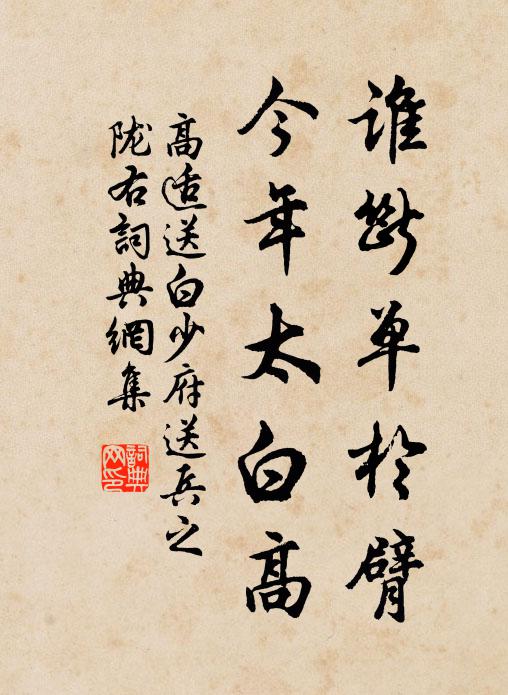 誰斷單於臂
今年太白高
高適送白少府送兵之
陇右詞典網集
詞典网印